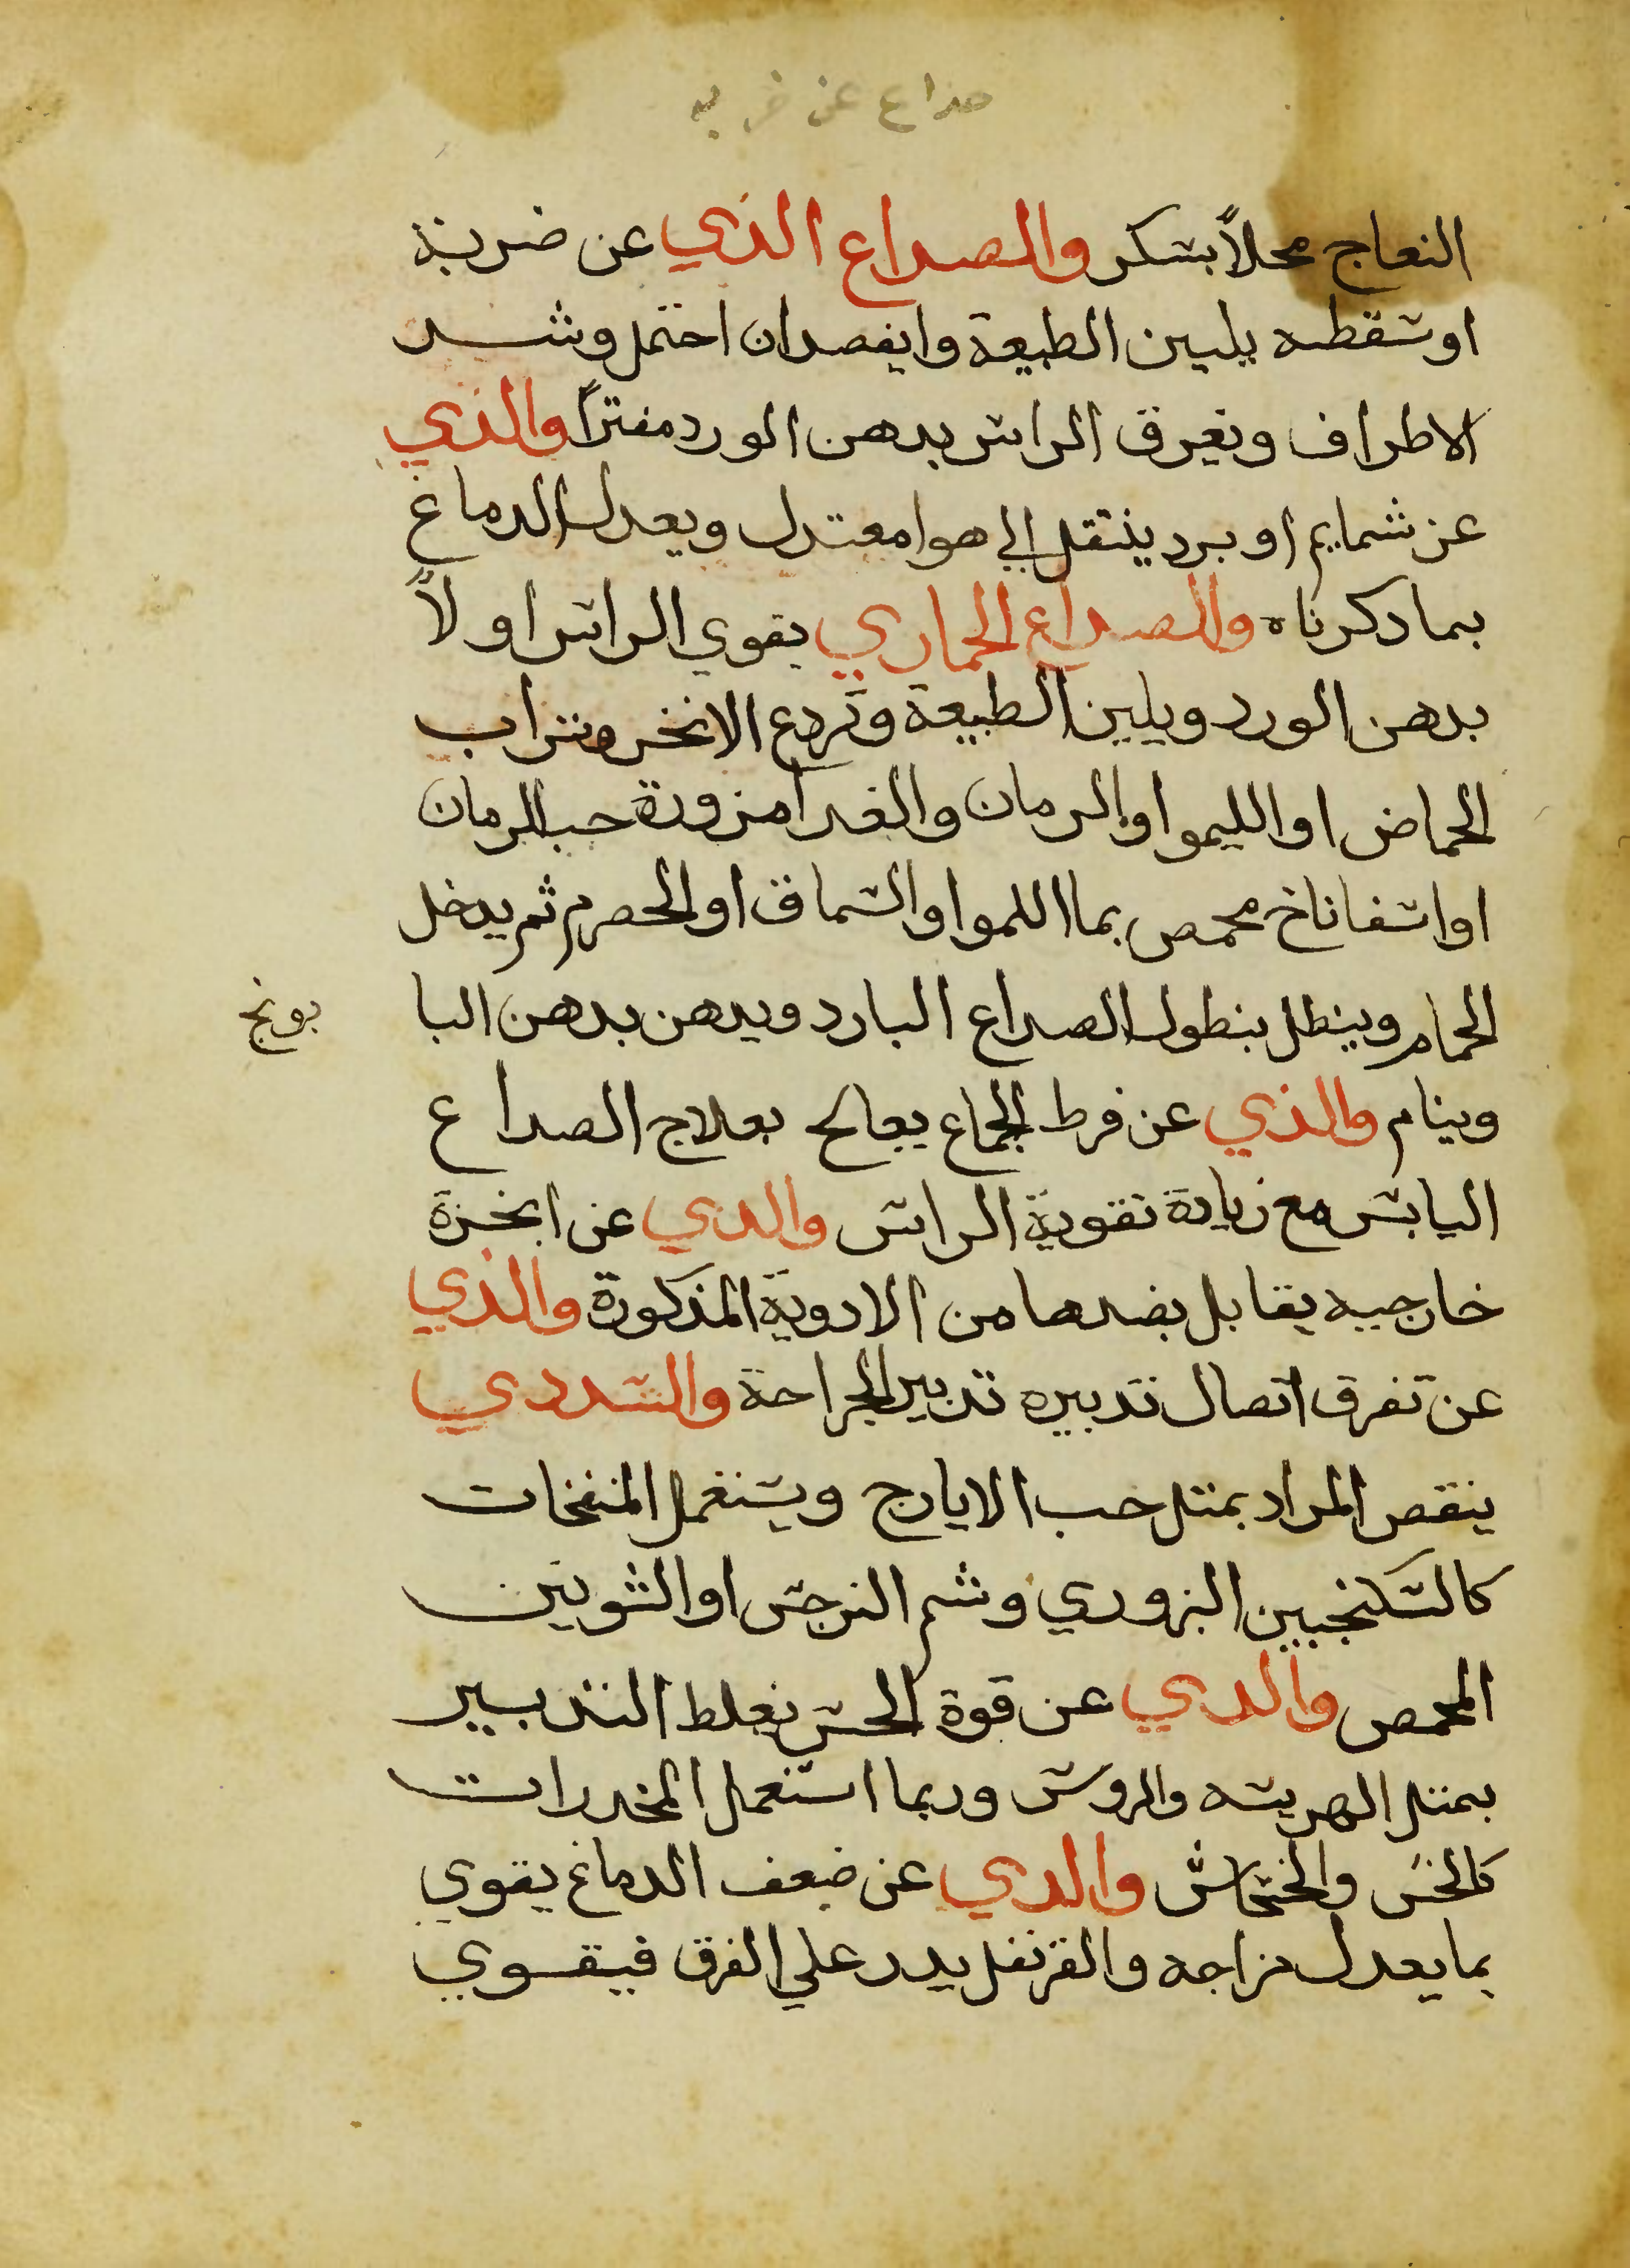 صداع عن ضربه
النعاج محلاً بسكر والصداع الذي عن ضربة
او سقطه يلين الطبيعة وايفصد ان احتمل وشد
الاطراف وتغرق الراس بدهن الورد مفتراً والذي
عن شمايم او برد ينتقل الي هوا معتدل ويعدل الدماغ
بما دكرناه والصداع الخماري يقوي الراس اولاً
بدهن الورد ويلين الطبيعة وتردع الابخر بشراب
الحماض او الليمو او الرمان والغدا مزورة حب الرمان
او اسفاناخ محمص بما اللمو او السماق او الحصرم ثم يدخل
الحمام وينطل بنطول الصداع البارد ويدهن بدهن البا بونج
وينام والذي عن فرط الجماع يعالج بعلاج الصداع
اليابس مع زيادة تقوية الراس والدي عن ابخرة
خارجيه يقابل بضدها من الادوية المذكورة والذي
عن تفرق اتصال تدبيره تدبير الجراحة والسددي
ينقص المراد بمتل حب الايارج ويستعمل المنفخات
كالسكنجبين البزوري وشم النرجس او الشونيز
المحمص والدي عن قوة الحس تغلط التدبير
بمتل الهريسه والروس وربما استعمل المخدرات
كالخس والخشخاش والدي عن ضعف الدماغ يقوي
بما يعدل مزاجه والقرنفل يدر علي الفرق فيقوي